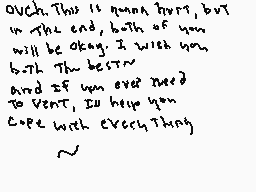 ovch. This is gonna hurt, but
in the end, both of you
will be okay. I wish you
both the best~
and If you ever need
To vent, I'll help you
cope with everything
~